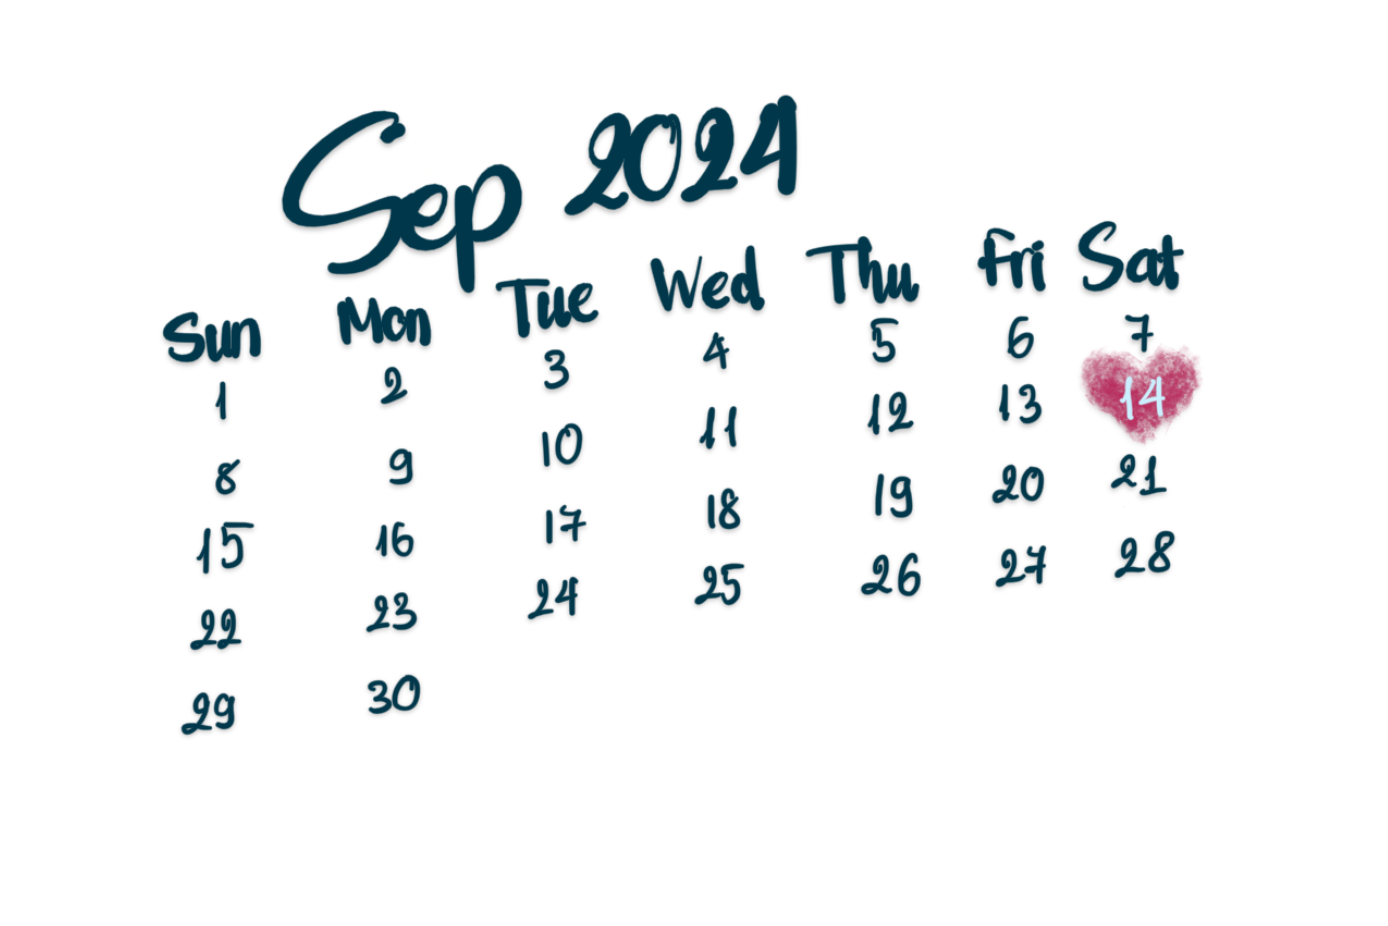 Sep 2024
Sun Mon Tue Wed Thu Fri Sat
1 2 3 4 5 6 7
8 9 10 11 12 13 14
15 16 17 18 19 20 21
22 23 24 25 26 27 28
29 30